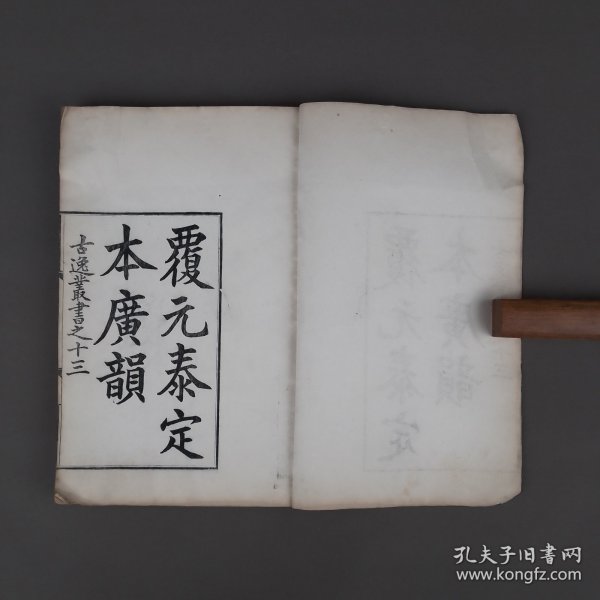 覆元泰定
本廣韻
古逸叢書之十三
孔夫子旧书网
www.kongfz.com